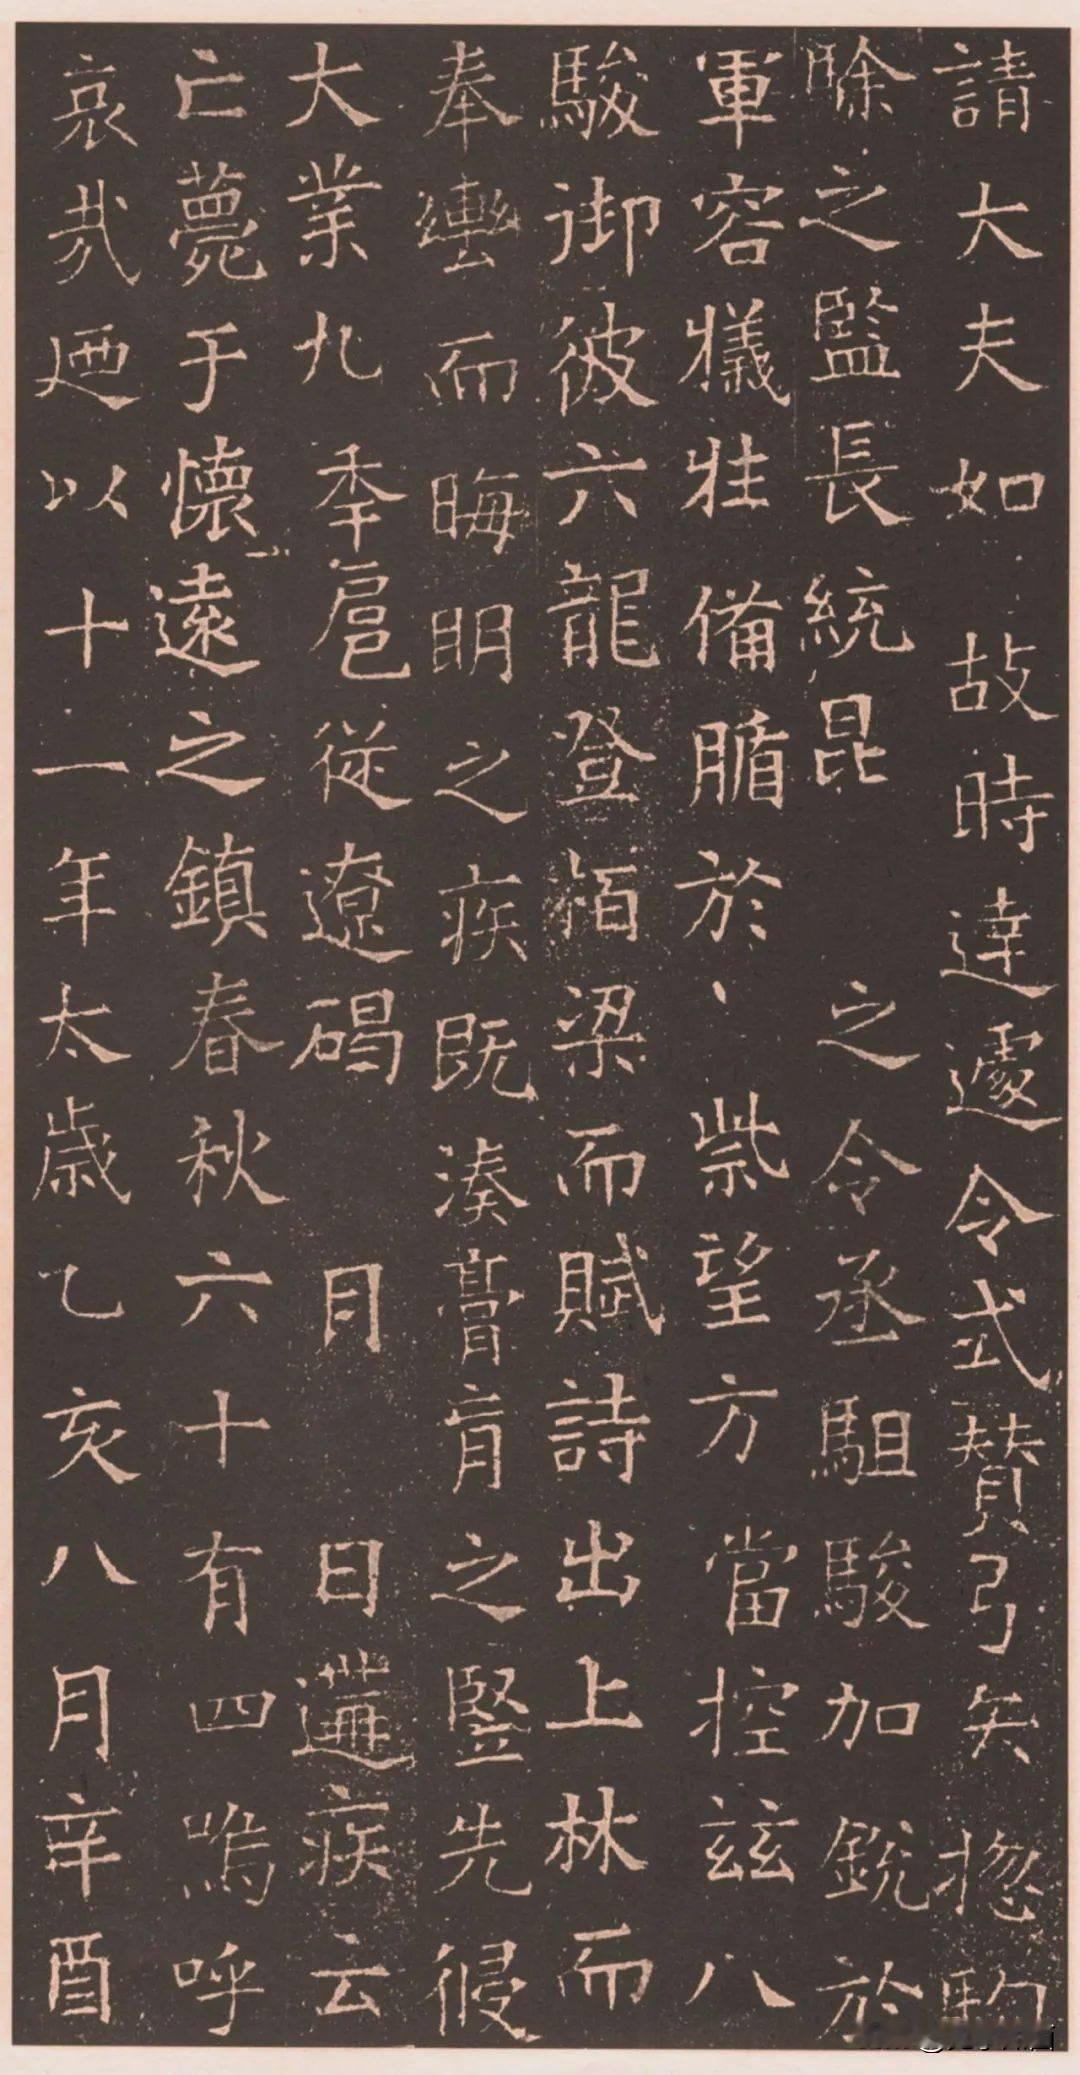 請大夫如故時達遽令式贊弓矢揔駒
賖之監長統昆之令丞駔駿加銳於
軍容犠牲備腯於紫望方當控茲八
駿御彼六龍登栢梁而賦詩出上林而
奉轡而晦明之疾既湊膏肓之竪先侵
大業九季扈從遼碣月日遘疾云
亡薨于懷遠之鎮春秋六十有四嗚呼
哀哉廼以十一年太歳乙亥八月辛酉